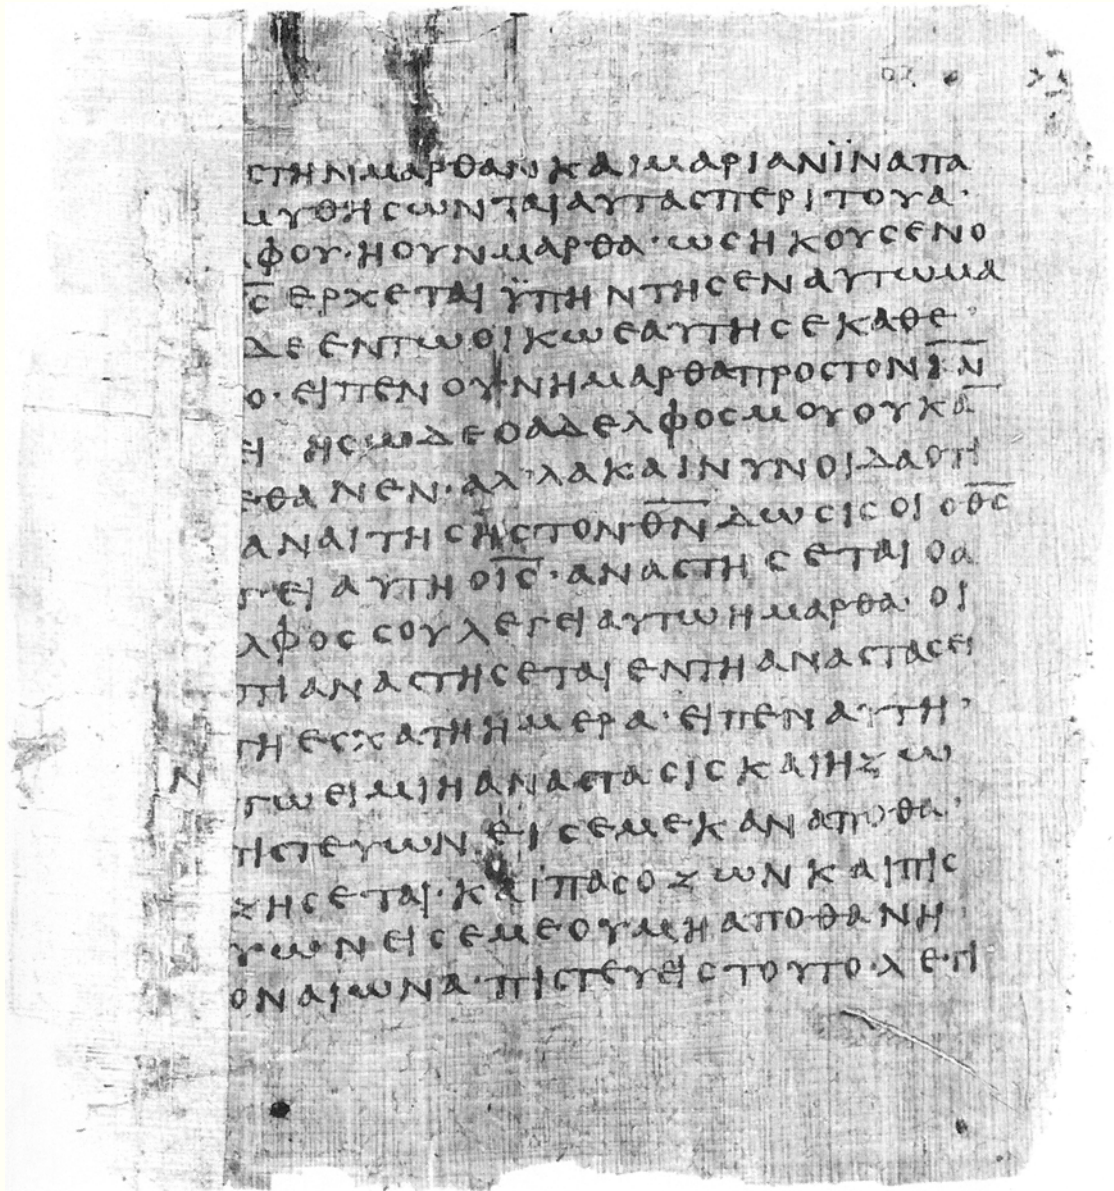 ϹΤΗΝΜΑΡΘΑΝΚΑΙΜΑΡΙΑΝΪΝΑΠΑ
ΜΥΘΗϹΩΝΤΑΙΑΥΤΑϹΠΕΡΙΤΟΥΑ·
ΦΟΥ·ΗΟΥΝΜΑΡΘΑ·ΩϹΗΚΟΥϹΕΝΟ
Ϲ̅ΕΡΧΕΤΑΙΫΠΗΝΤΗϹΕΝΑΥΤΩΜΑ
ΔΕΕΝΤΩΟΙΚΩΕΑΥΤΗϹΕΚΑΘΕ·
Ο·ΕΙΠΕΝΟΥΝΗΜΑΡΘΑΠΡΟϹΤΟΝΙ̅Ν̅
ΕΙ ΗϹΩΔΕΟΑΔΕΛΦΟϹΜΟΥΟΥΚΑ̅
ΕΘΑΝΕΝ·ΑΛʼΛΑΚΑΙΝΥΝΟΙΔΑΟΤΙ
ΑΝΑΙΤΗϹΗϹΤΟΝΘ̅Ν̅ΔΩϹΙϹΟΙΟΘ̅Ϲ̅
ΓΕΙΑΥΤΗΟΙ̅Ϲ̅·ΑΝΑϹΤΗϹΕΤΑΙΟΑ
ΛΦΟϹϹΟΥΛΕΓΕΙΑΥΤΩΗΜΑΡΘΑ·ΟΙ
ΤΙΑΝΑϹΤΗϹΕΤΑΙΕΝΤΗΑΝΑϹΤΑϹΕΙ
ΤΗΕϹΧΑΤΗΗΜΕΡΑ·ΕΙΠΕΝΑΥΤΗ·
ΓΩΕΙΜΙΗΑΝΑϹΤΑϹΙϹΚΑΙΗΖΩ
ΠΙϹΤΕΥΩΝΕΙϹΕΜΕΚΑΝΑΠΟΘΑ·
ΖΗϹΕΤΑΙ·ΚΑΙΠΑϹΟΖΩΝΚΑΙΠΙϹ
ΥΩΝΕΙϹΕΜΕΟΥΜΗΑΠΟΘΑΝΗ
ΟΝΑΙΩΝΑ·ΠΙϹΤΕΥΕΙϹΤΟΥΤΟ·ΛΕΓΙ